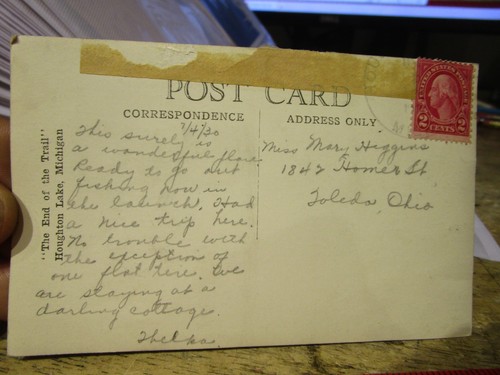 POST CARD
CORRESPONDENCE
ADDRESS ONLY
"The End of the Trail"
Houghton Lake, Michigan
7/4/30
This surely is
a wonderful place.
Ready to go out
fishing now in
the launch. Had
a nice trip here.
No trouble with
the exception of
one flat tire. We
are staying at a
darling cottage.
Thelka.
Miss Mary Higgins
1842 Homer St
Toledo, Ohio
UNITED STATES POSTAGE
2 CENTS 2